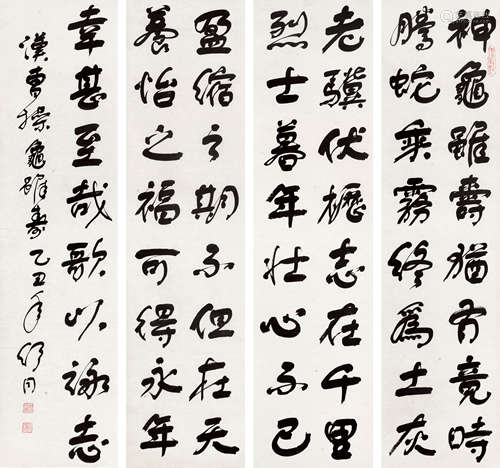 神龜雖壽猶有竟時
騰蛇乘霧終爲土灰
老驥伏櫪志在千里
烈士暮年壯心不已
盈縮之期不但在天
養怡之福可得永年
幸甚至哉歌以詠志
漢曹操龜雖壽乙丑年舒同